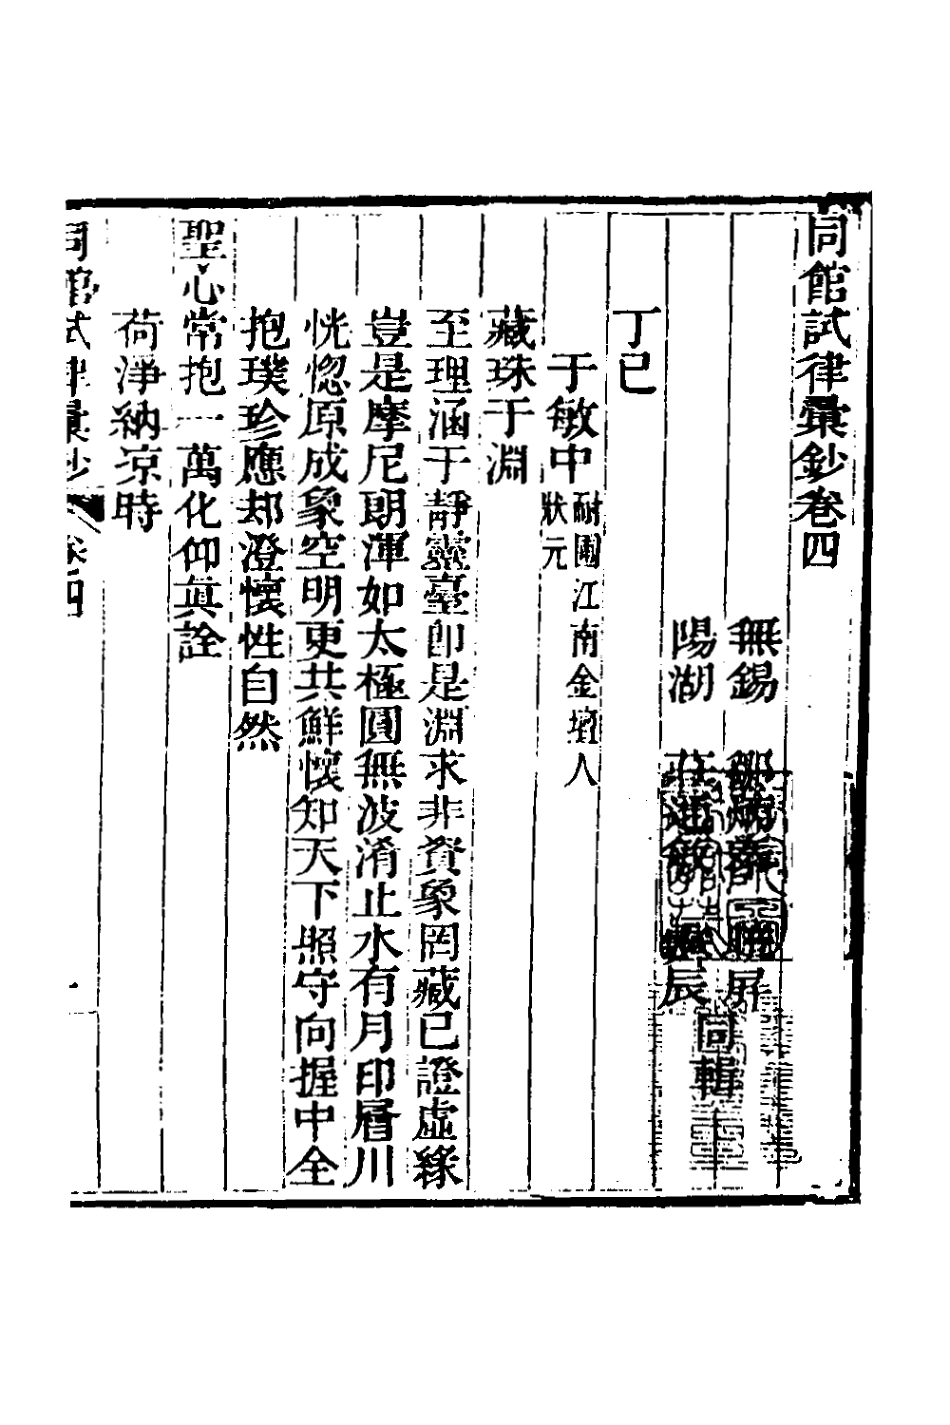 同館試律彙鈔卷四
無錫 屏
陽湖 莊通敏 辰
同輯
丁巳
于敏中耐圃江南金壇人狀元
藏珠于淵
至理涵于靜靈臺卽是淵求非資象罔藏已證虛緣
豈是摩尼朗渾如太極圓無波淆止水有月印層川
恍惚原成象空明更共鮮懷知天下照守向握中全
抱璞珍應却澄懷性自然
聖心常抱一萬化仰眞詮
荷淨納凉時
同館試律彙鈔 卷四 一